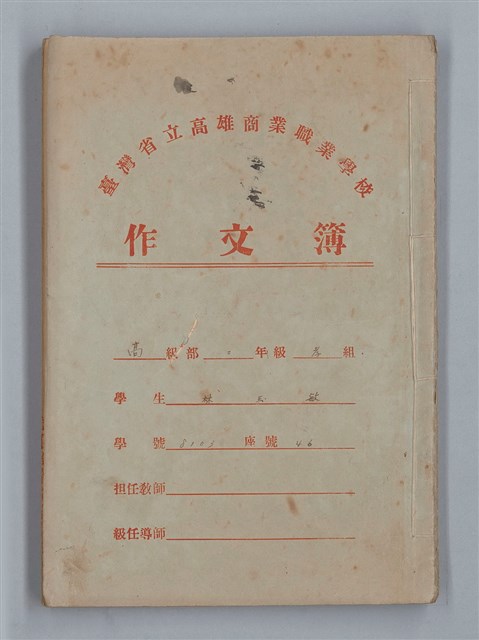 臺灣省立高雄商業職業學校
作文簿
高級部二年級孝組
學生 林文敏
學號 8105 座號 46
担任教師
級任導師